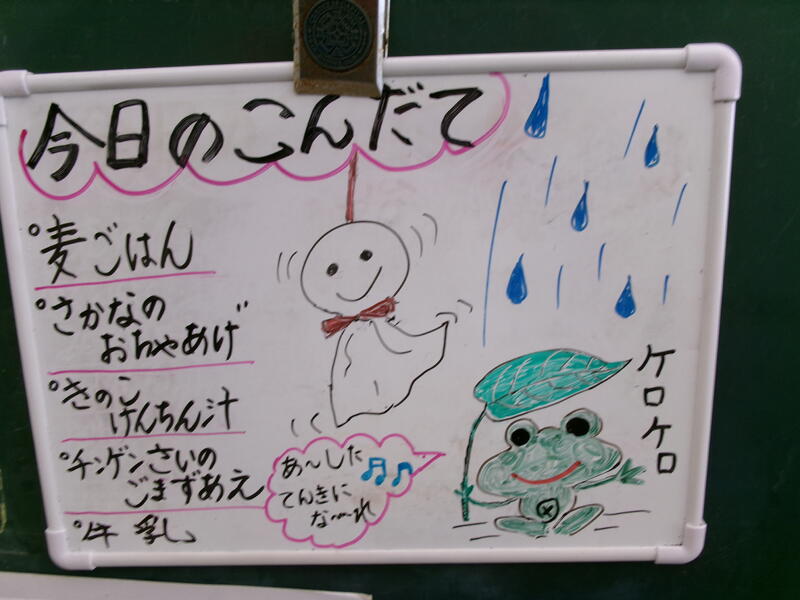 今日のこんだて
°麦ごはん
°さかなの
おちゃあげ
°きのこ
けんちん汁
°チンゲンさいの
ごまずあえ
°牛乳
あ〜した
てんきに
な〜れ
ケロケロ